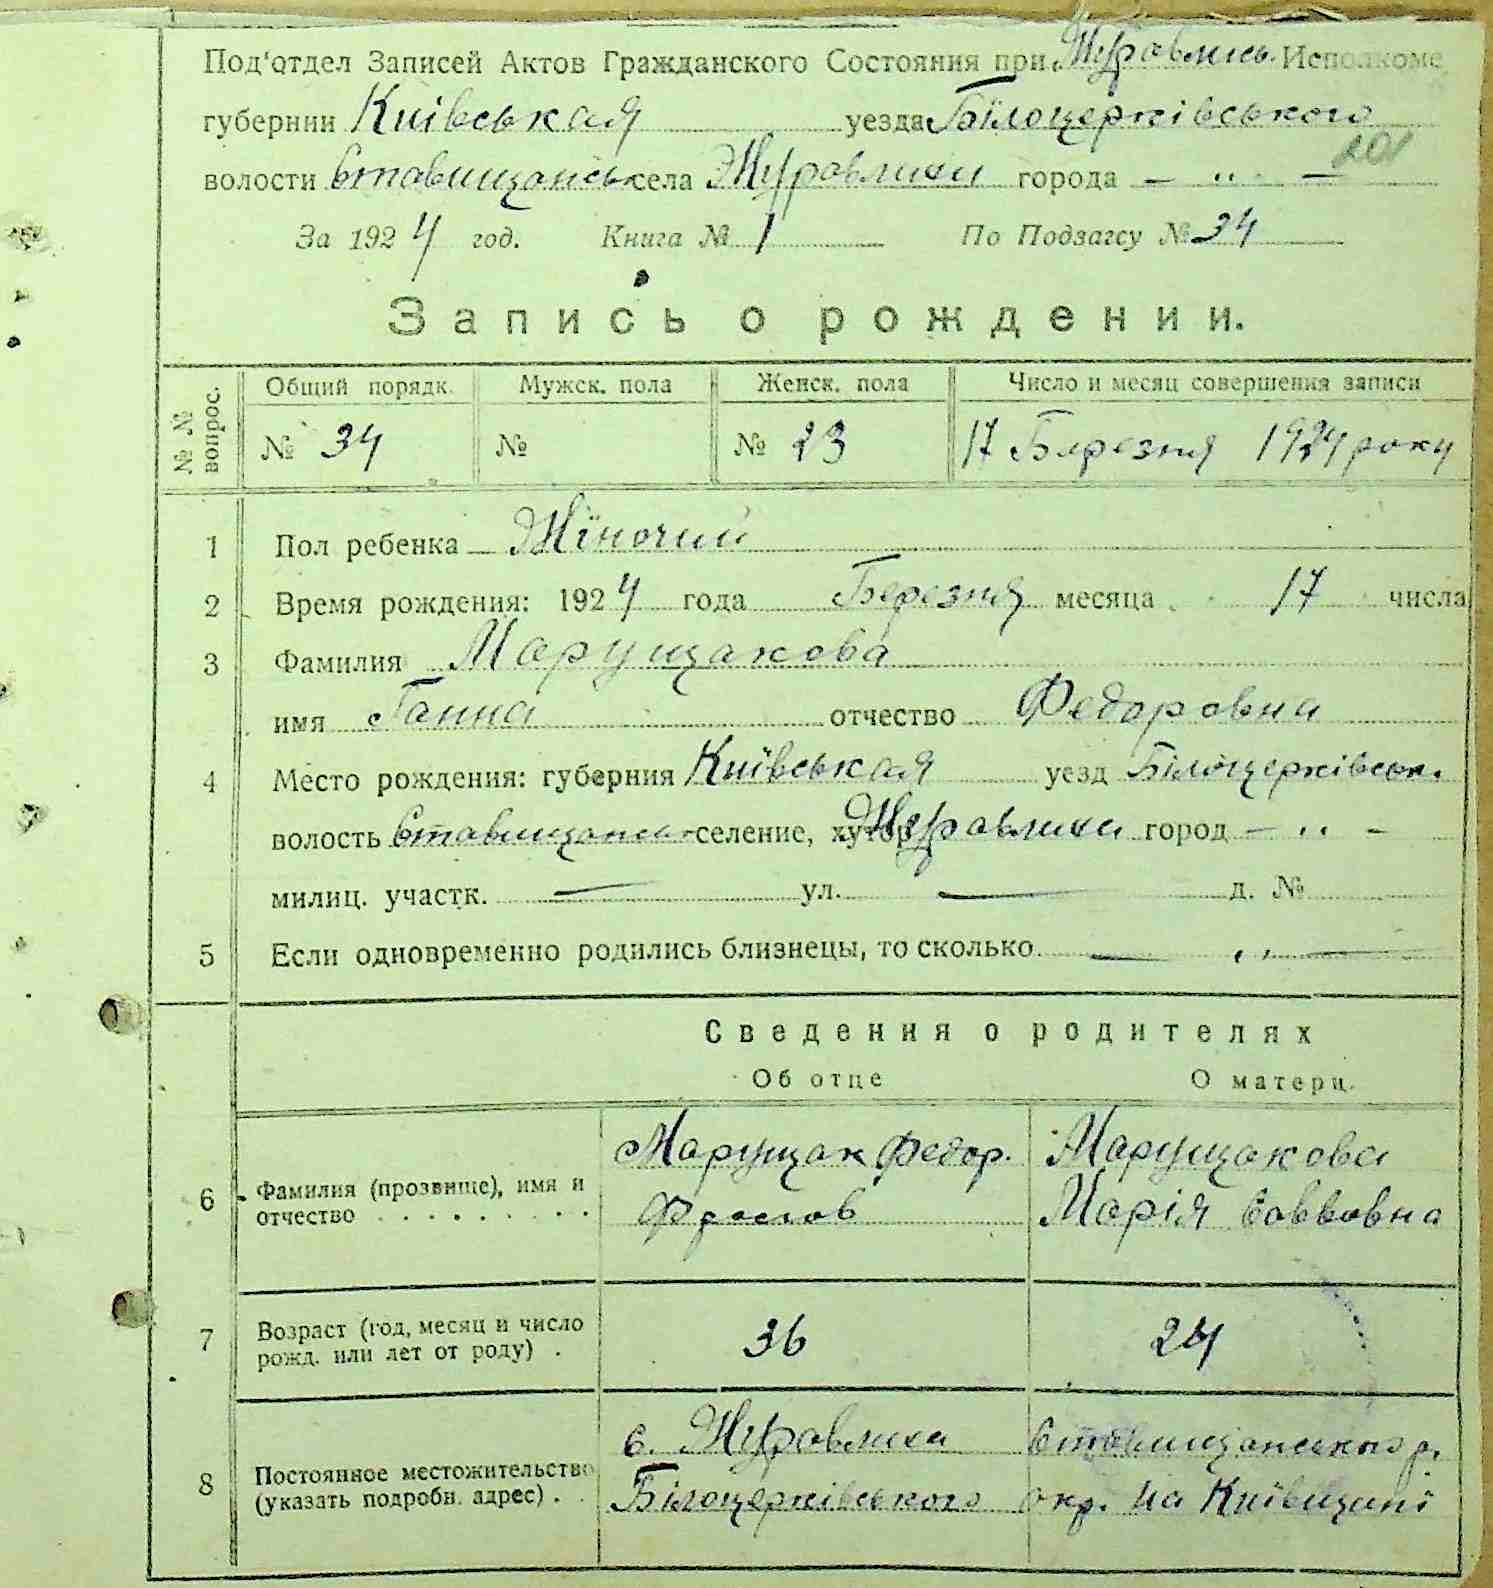 Под'отдел Записей Актов Гражданского Состояния при Журавлись. Исполкоме
губернии Київськая уезда Білоцерківського
201
волости Ставищанськ села Журавлихи города — „ —
За 1924 год. Книга № 1 По Подзагсу № 34
Запись о рождении.
№ № вопрос. Общий порядк. Мужск. пола Женск. пола Число и месяц совершения записи
№ 34 № № 23 17 Березня 1924 року
1 Пол ребенка Жіночий
2 Время рождения: 1924 года Березня месяца 17 числа
3 Фамилия Марущакова
имя Ганна отчество Федоровна
4 Место рождения: губерния Київськая уезд Білоцерківськ.
волость Ставищанськ селение, хутор Журавлиха город — „ —
милиц. участк. — ул. — д. №
5 Если одновременно родились близнецы, то сколько — „ —
Сведения о родителях
Об отце О матери.
6 Фамилия (прозвище), имя и отчество . . . . . . . . .
Марущак Федор. Марущакова
Марія Савовна
7 Возраст (год, месяц и число рожд. или лет от роду) .
36 24
8 Постоянное местожительство (указать подробн. адрес) . .
с. Журавлиха Ставищанського р.
Білоцерківського окр. на Київщині